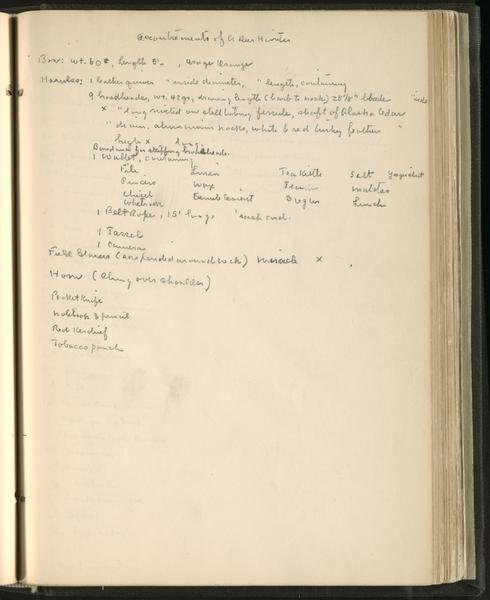 Accoutrements of a Deer Hunter
Bow: wt. 60#, length 5'- , Osage Orange
1 leather quiver " inside diameter, " length, containing
9 broadheads, wt. 42 grs, drawing length (barb to nock) 28 1/8" blade " wide
x " long riveted on steel tubing ferrule, shaft of Alaska Cedar
" diam. aluminum nocks, white & red turkey feather "
high x long
Bandana for stuffing broadheads.
1 Wallet, containing
File Linen Tea Kettle Salt
Pincers Wax Tea Matches
Chisel Ferrule Cement Sugar Lunch
Whetrock
1 Belt Rope, 15' long sash cord.
1 Tassel
1 Camera
Field Glasses (suspended around neck) Miracle x
Horn (slung over shoulder)
Pocket Knife
Notebook & pencil
Red Kerchief
Tobacco pouch